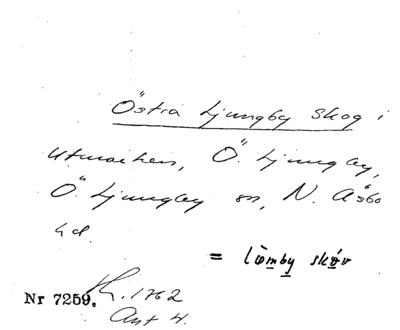 Östra Ljungby skog i
utmarken, Ö. Ljungby,
Ö. Ljungby sn, N. Åsbo
hd.
= lùmby skóv
Nr 7259. h. 1762
Ant 4.